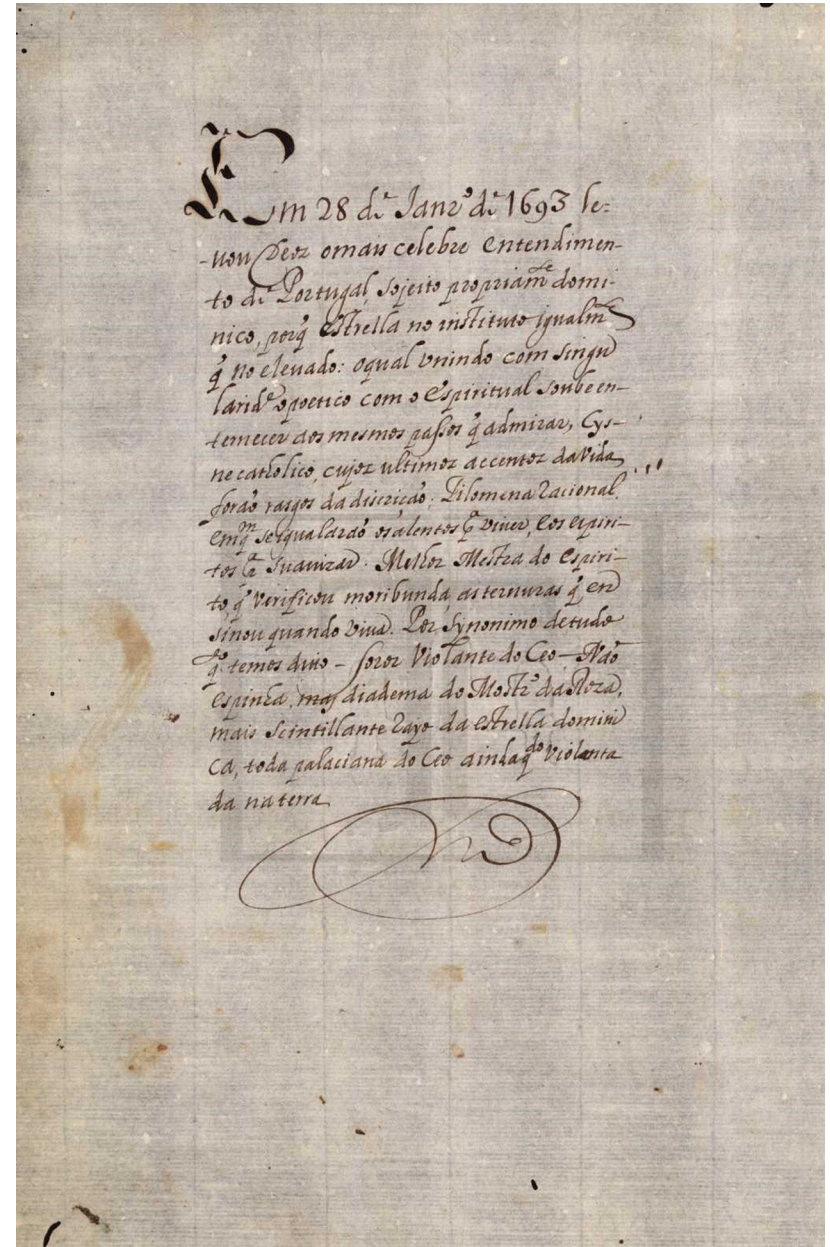 Em 28 de Janr.º de 1693 le-
-uou Deoz omais celebre entendimen-
to de Portugal, sojeito propriam.te domi-
nico, porq̃ estrella no instituto igualm.te
q̃ no eleuado: oqual vnindo com singu
larid.e opoetico com o espiritual soube en-
temecer aos mesmos passos q̃ admirar, Cys-
ne catholico, cujoz ultimoz accentoz da vida
forão rasgos da discrição; Filomena racional,
emq.m seigualarão osalentos p.a viver, eos espiri-
tos p.a suauizar. Melhor Mestra do espiri-
to, q̃ verificou moribunda, as ternuras q̃ en
sinou quando viua. Por synonimo de tudo
q.to temos dito - soror Violante do Ceo - Não
espinha, mas diadema do Mostr.º da Roza,
mais scintillante rayo da estrella domini
ca, toda palaciana do Ceo ainda q.do violenta
da na terra